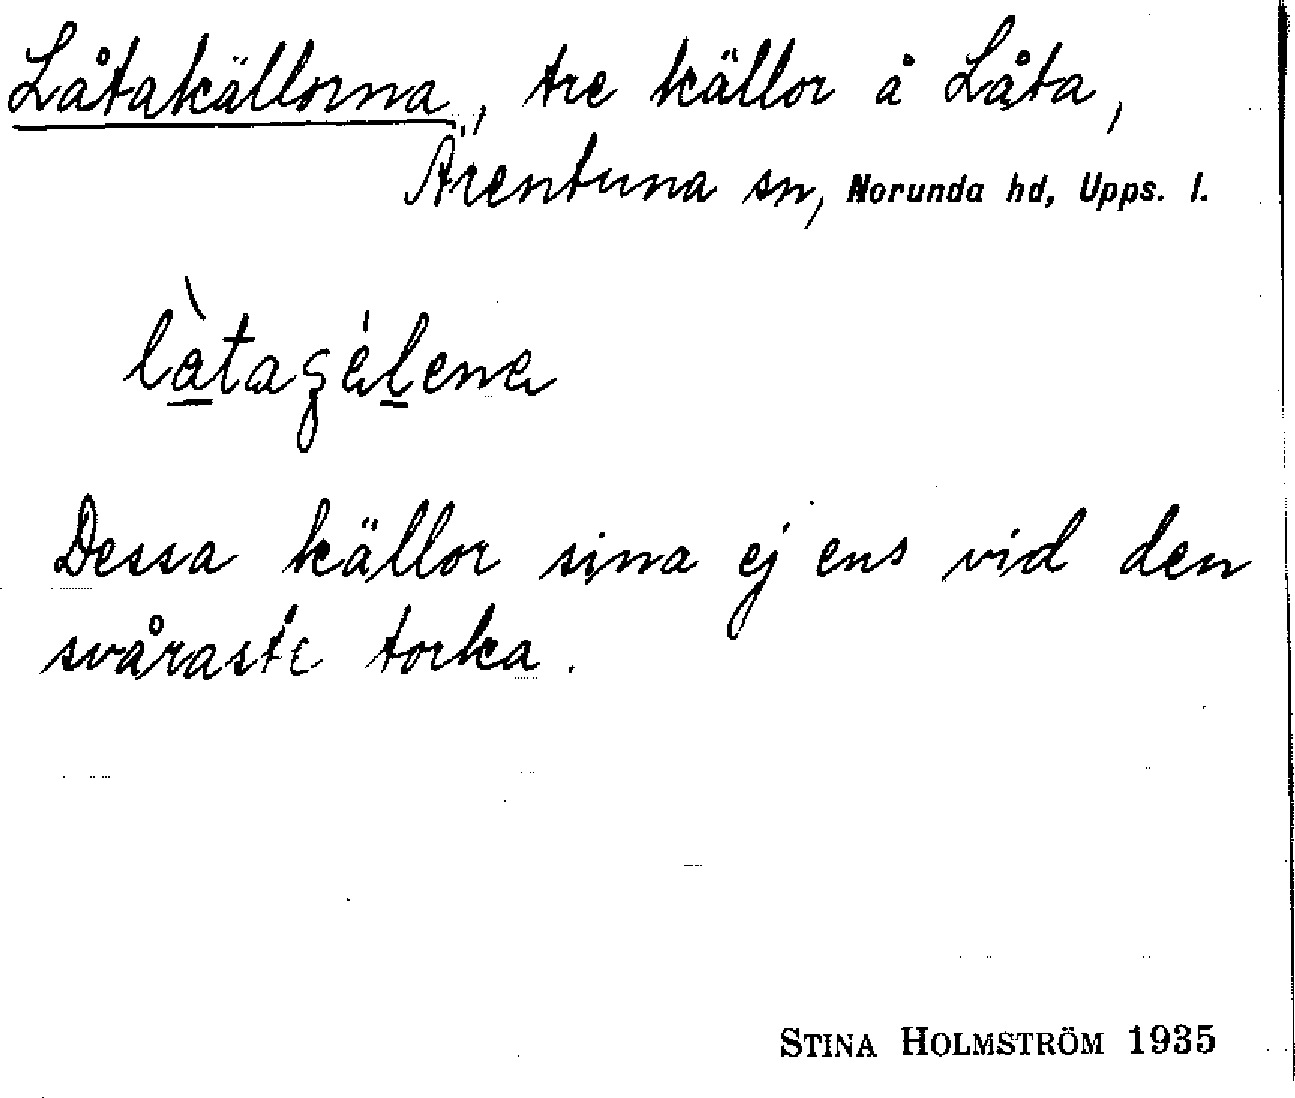 Låtakällorna, tre källor å Låta,
Ärentuna sn, Norunda hd, Upps. l.
Dessa källor sina ej ens vid den
svåraste torka.
STINA HOLMSTRÖM 1935